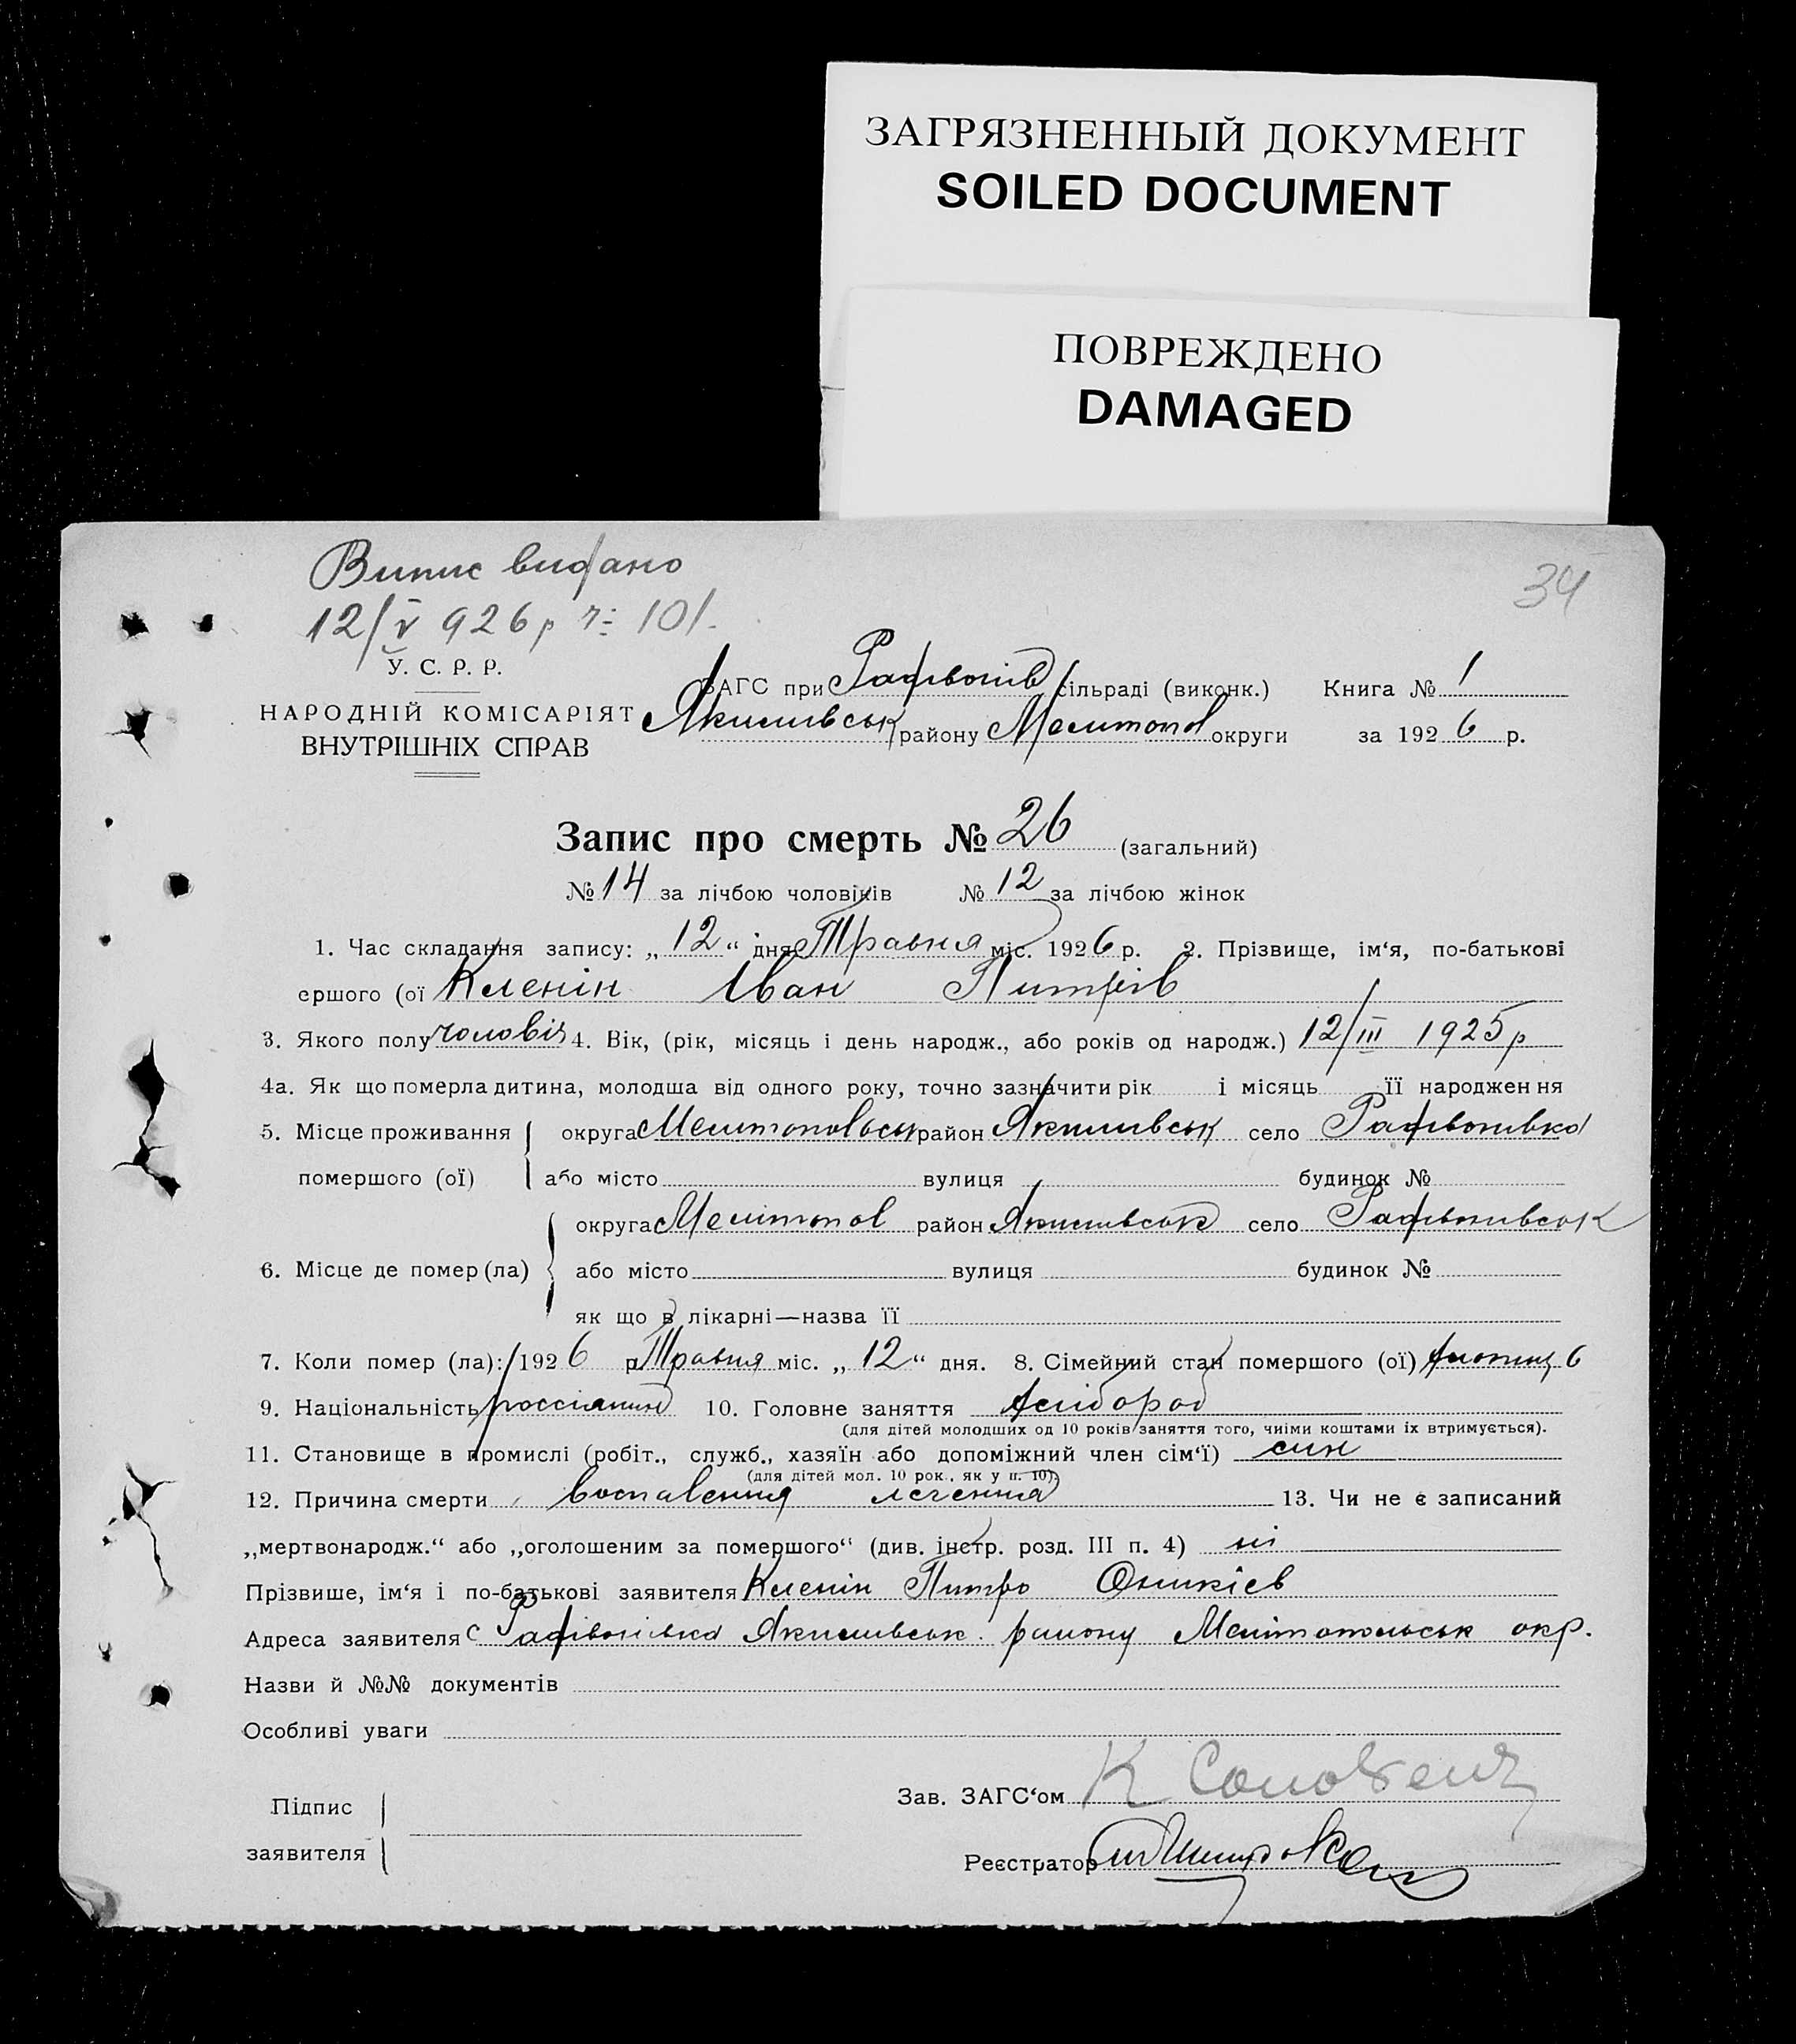 ЗАГРЯЗНЕННЫЙ ДОКУМЕНТ
SOILED DOCUMENT
ПОВРЕЖДЕНО
DAMAGED
Випис видано
12/V 926 р № 101.
34
У. С. Р. Р.
НАРОДНІЙ КОМІСАРІЯТ
ВНУТРІШНІХ СПРАВ
ЗАГС при Радівонів сільраді (виконк.) Книга № 1
Якимівськ району Мелитопол округи за 1926 р.
Запис про смерть № 26 (загальний)
№ 14 за лічбою чоловіків № 12 за лічбою жінок
1. Час складання запису: „12“ дня Травня міс. 1926 р. 2. Прізвище, ім‘я, по-батькові
ершого (ої Кленін Іван Питрів
3. Якого полу чоловіч 4. Вік, (рік, місяць і день народж., або років од народж.) 12/III 1925 р
4а. Як що померла дитина, молодша від одного року, точно зазначити рік і місяць її народження
5. Місце проживання округа Мелитоповськ район Якимівськ село Радівонивка
помершого (ої) або місто вулиця будинок №
округа Мелітопол район Якимивськ село Радивонивськ
6. Місце де помер (ла) або місто вулиця будинок №
як що в лікарні—назва її
7. Коли помер (ла): 1926 р Травня міс. „12“ дня. 8. Сімейний стан помершого (ої)
9. Національність россіянин 10. Головне заняття хлібороб
(для дітей молодших од 10 років заняття того, чиїми коштами їх втримується).
11. Становище в промислі (робіт., служб., хазяїн або допоміжний член сім‘ї) син
(для дітей мол. 10 рок., як у п. 10).
12. Причина смерти воспаления легения 13. Чи не є записаний
„мертвонародж.“ або „оголошеним за помершого“ (див. інстр. розд. III п. 4) ні
Прізвище, ім‘я і по-батькові заявителя Кленін Питро Оникієв
Адреса заявителя с Радівонівка Якимивськ. району Мелітопольськ окр.
Назви й №№ документів
Особливі уваги
Підпис
заявителя
Зав. ЗАГС‘ом К
Реєстратор